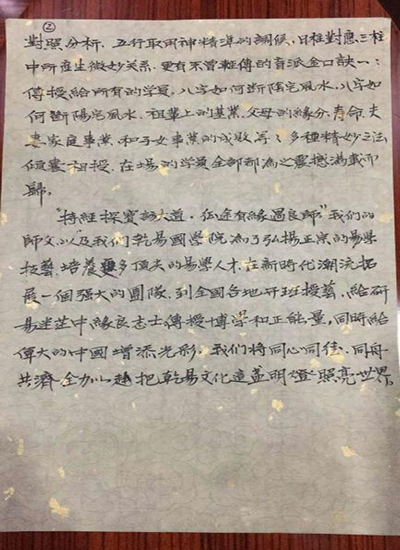 ②
對照分析，五行取用神精准的調候，日柱對應三柱
中所産生微妙关系，更有不曾輕傳的盲派金口訣一：
傳授給所有的学員，八字如何斷陰宅風水，八字如
何斷陽宅風水，祖輩上的基業，父母的緣分，寿命，夫
妻家庭事業和子女事業的成敗等；多種精妙之法
傾囊相授，在場的学員全部都為之震撼滿載而
歸。
"持經探寶訪大道，征途有緣遇良師"我们的
師父以及我们乾易國学院為了弘揚正宗的易学
技藝，培養更多頂尖的易学人才，在新時代潮流拓
展一個强大的團隊，到全國各地开班授藝，給研
易迷茫中緣良志士傳授博学和正能量，同時給
偉大的中國增添光彩，我们將同心同德、同舟
共濟，全力以赴把乾易文化這盞明燈照亮世界。